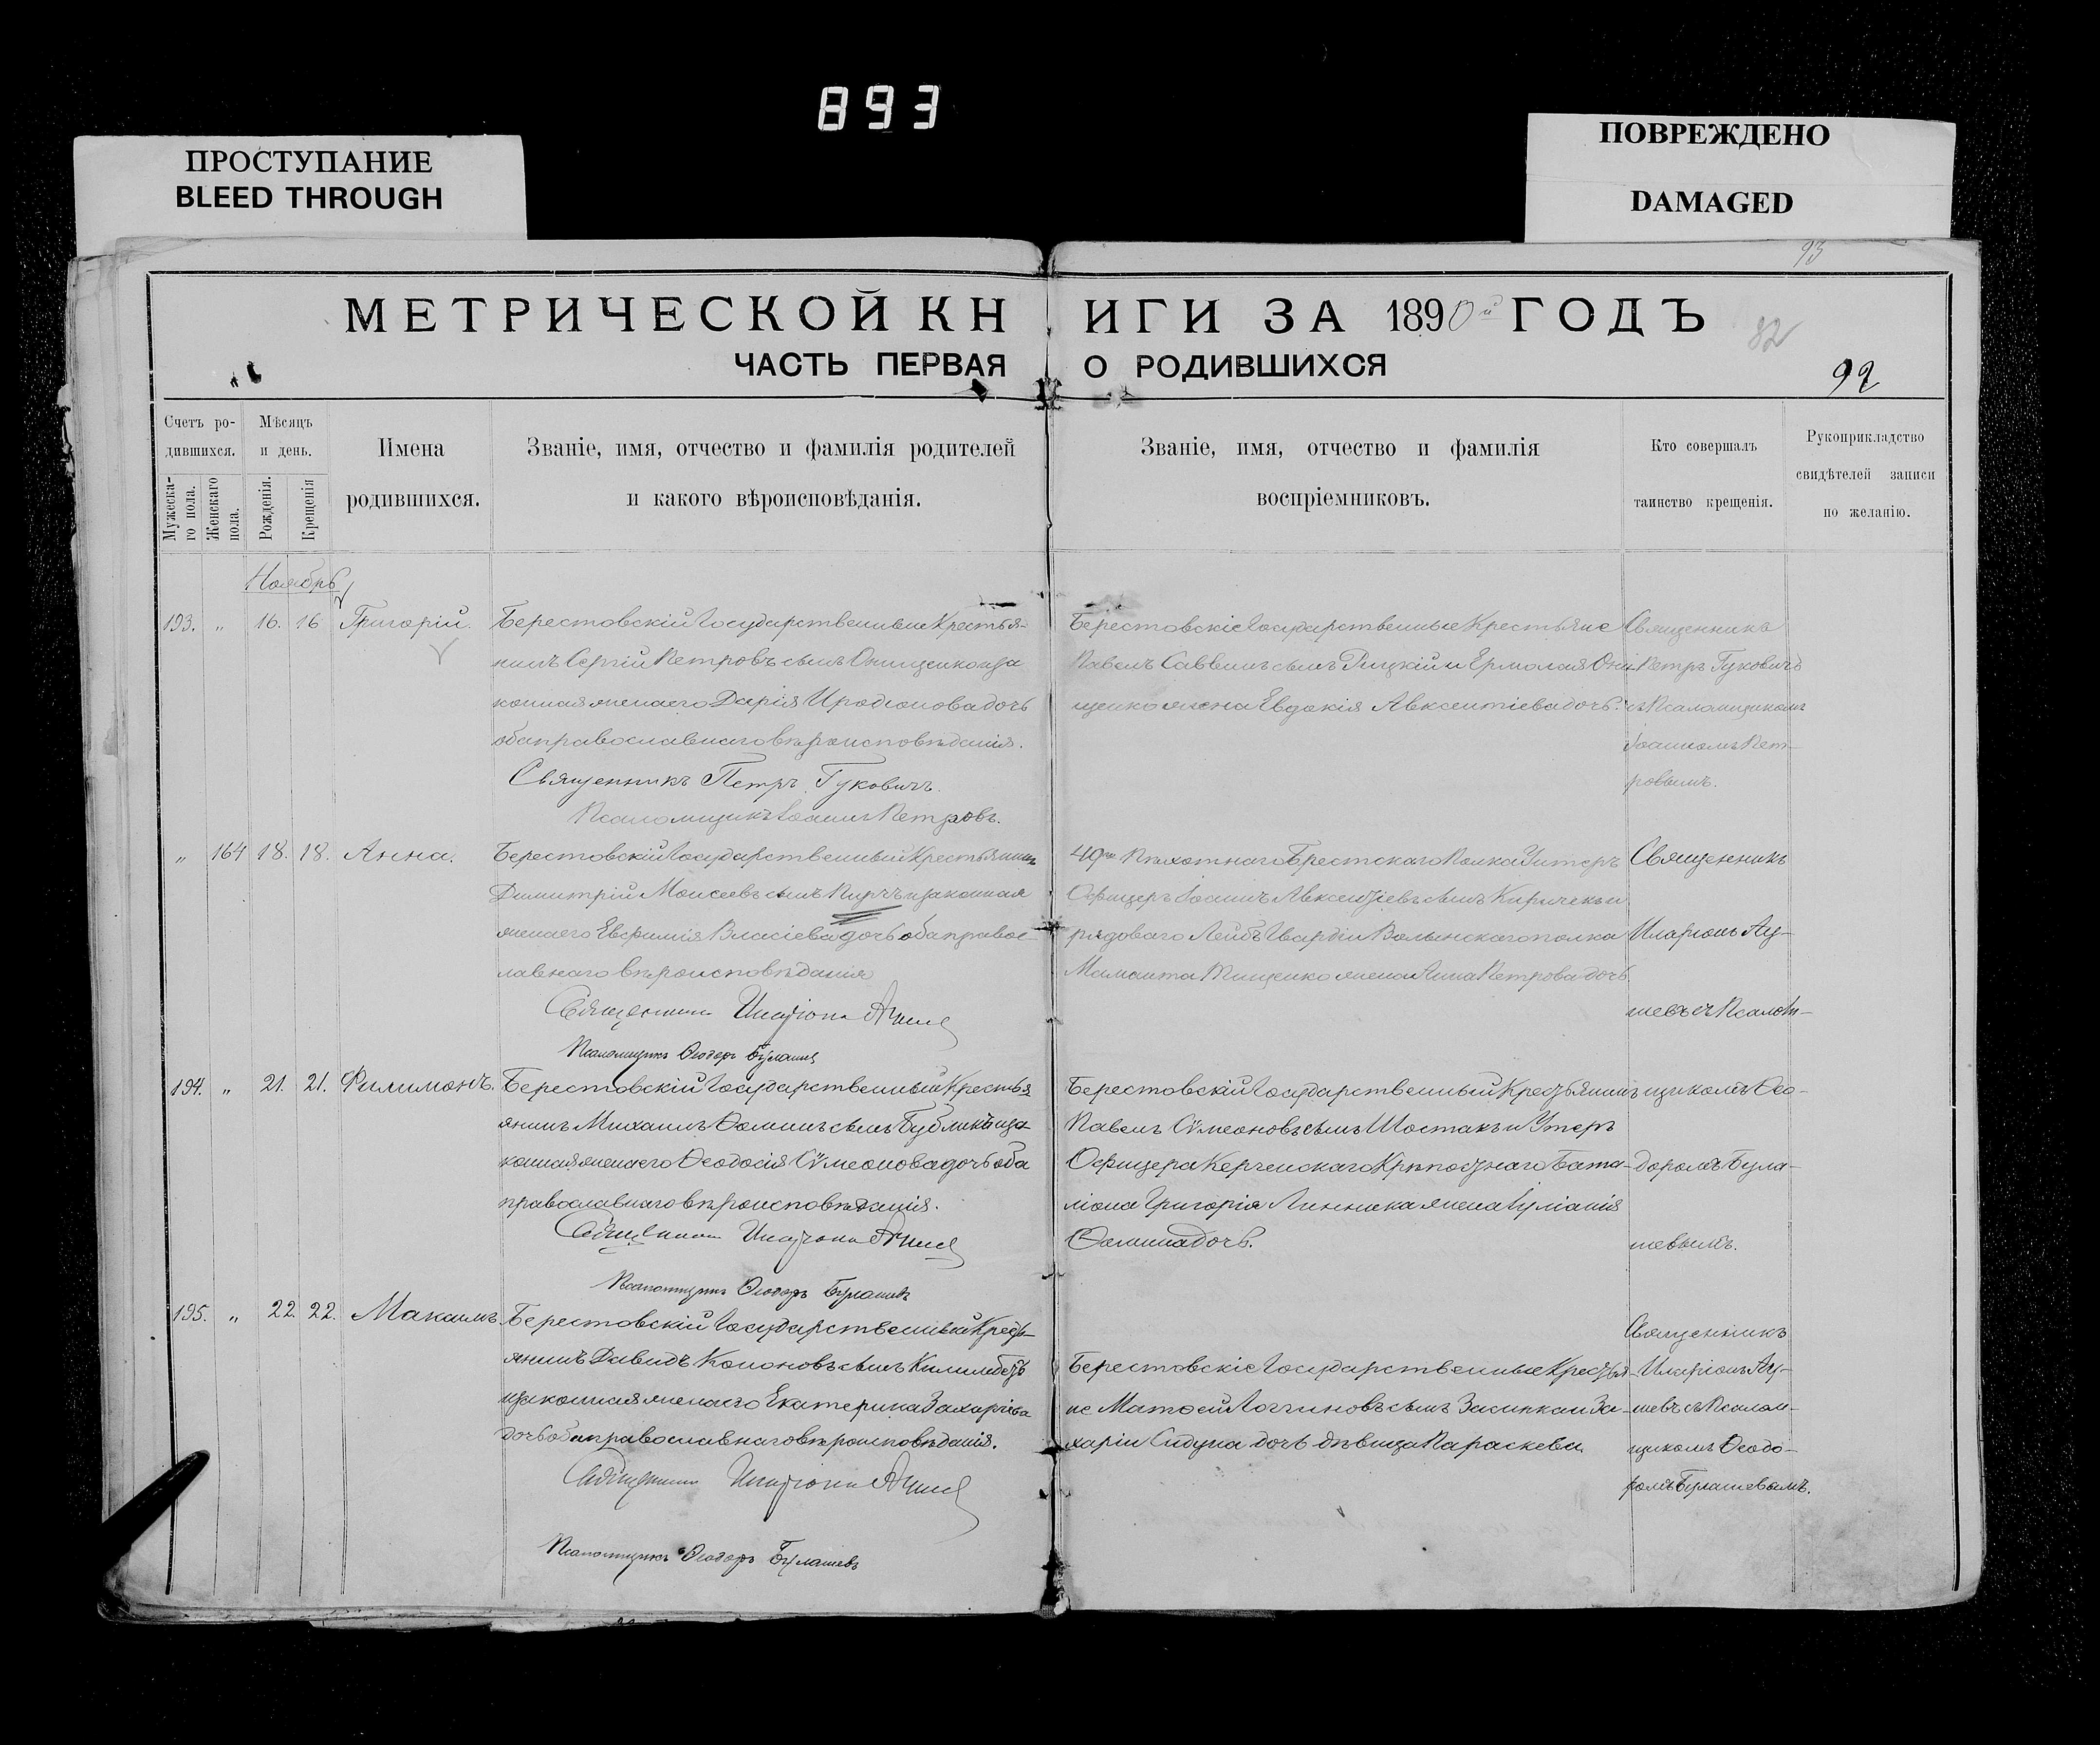 893
ПРОСТУПАНИЕ
BLEED THROUGH
ПОВРЕЖДЕНО
DAMAGED
93
МЕТРИЧЕСКОЙ КНИГИ ЗА 1890й ГОДЪ
82
ЧАСТЬ ПЕРВАЯ О РОДИВШИХСЯ
92
Счетъ ро-
дившихся.
Мужеска-
го пола.
Женскаго
пола.
Мѣсяцъ
и день.
Рожденія.
Крещенія
Имена
родившихся.
Званіе, имя, отчество и фамилія родителей
и какого вѣроисповѣданія.
Званіе, имя, отчество и фамилія
воспріемниковъ.
Кто совершалъ
таинство крещенія.
Рукоприкладство
свидѣтелей записи
по желанію.
Ноябрь
193. „ 16. 16 Григорій.
Берестовскій Государственные Крестья-
нинъ Сергій Петровъ сынъ Онищенко и за
конная жена его Дарія Иродіонова дочь
оба православнаго вѣроисповѣданія.
Священникъ Петръ Гуковичъ.
Псаломщикъ Іоаннъ Петровъ.
Берестовскіе Государственные Крестьяне
Павелъ Саввинъ сынъ и Ермолая Они-
щенко жена Евдокія Авксентіева дочь.
Священникъ
Петръ Гуковичъ
съ Псаломщикомъ
Іоанномъ Пет-
ровымъ.
„ 164 18. 18. Анна.
Берестовскій Государственный Крестьянинъ
Димитрій Моисеевъ сынъ и законная
жена его Евфимія Власіева дочь оба правос-
лавнаго вѣроисповѣданія
Священникъ Иларіонъ
Псаломщикъ Ѳеодоръ Булашевъ
49го Пѣхотнаго Брестскаго Полка Унтеръ
Офицеръ Іоаннъ Авксентіевъ сынъ Кириченко и
рядоваго Лейбъ Гвардіи Волынскаго полка
Маманта Тищенко жена Анна Петрова дочь
Священникъ
Иларіонъ Ау-
шевъ съ Псалом-
194. „ 21. 21. Филимонъ.
Берестовскій Государственный Крестья
янинъ Михаилъ Ѳоминъ сынъ Бублик и за-
конная жена его Ѳеодосія Сѵмеонова дочь оба
православнаго вѣроисповѣданія.
Священникъ Иларіонъ
Псаломщикъ Ѳеодоръ Булашевъ
Берестовскій Государственный Крестьянинъ
Павелъ Сѵмеоновъ сынъ Шостакъ и Унтеръ
Офицера Керченскаго Крѣпостнаго Бата-
ліона Григорія Линника жена Іуліанія
Ѳомина дочь.
щикомъ Ѳео-
доромъ Була-
шевымъ.
195. „ 22. 22. Максимъ.
Берестовскій Государственный Кресть-
янинъ Давидъ Кононовъ сынъ
и законная жена его Екатерина Захаріева
дочь оба православнаго вѣроисповѣданія.
Священникъ Иларіонъ
Псаломщикъ Ѳеодоръ Булашевъ
Берестовскіе Государственные Крестья-
не Матѳей Логгиновъ сынъ и За-
харіи Сидуна дочь дѣвица Параскева.
Священникъ
Иларіонъ Ау-
шевъ съ Псалом-
щикомъ Ѳеодо-
ромъ Булашевымъ.